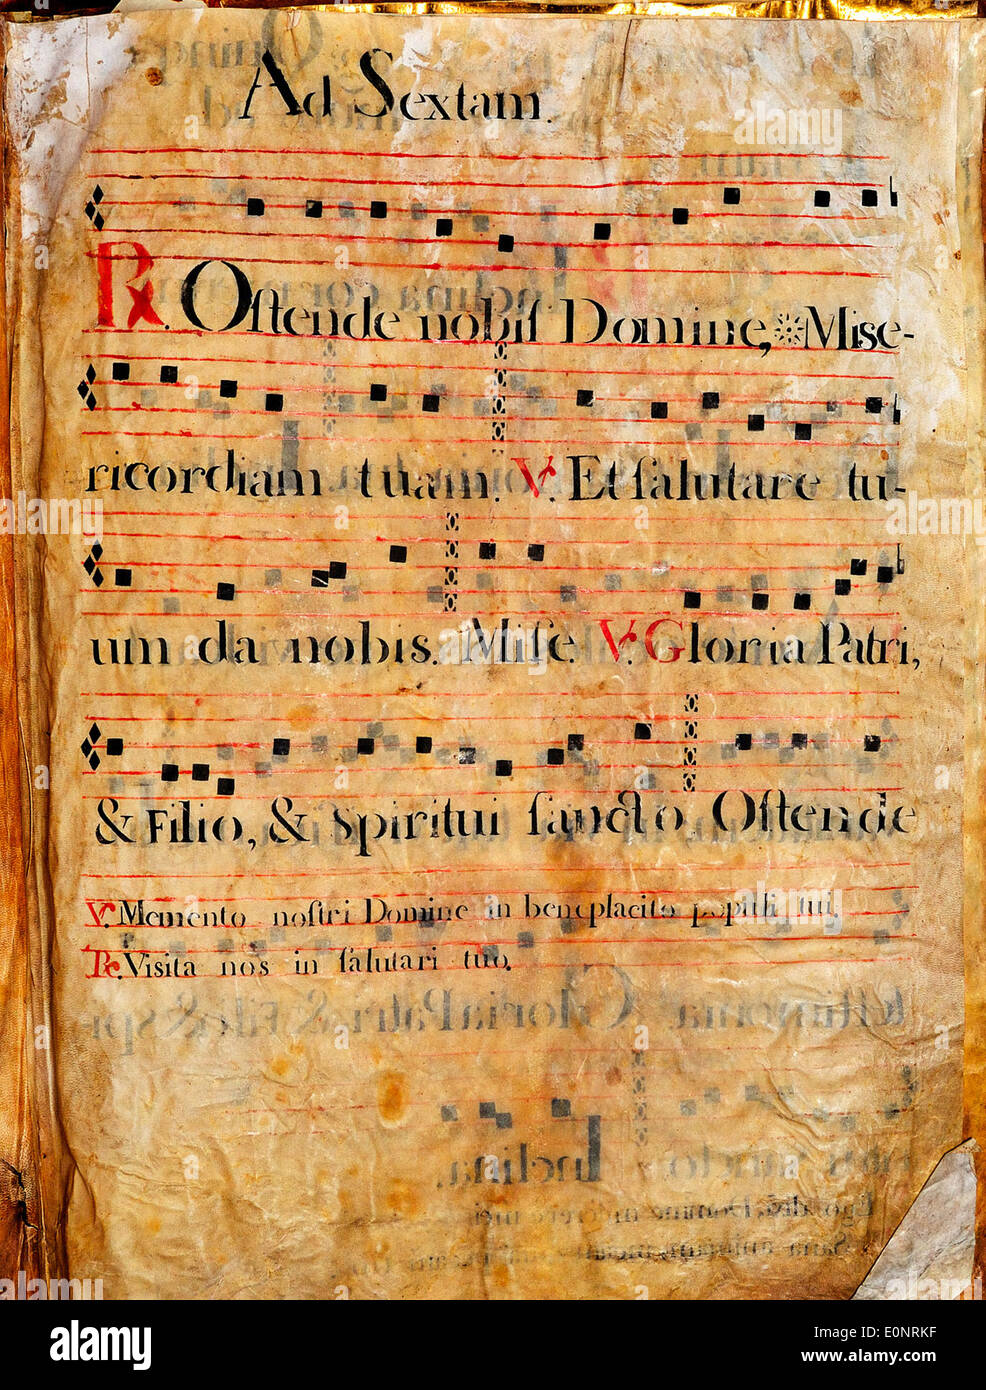 Ad Sextam.
℟. Oſtende nobiſ Domine, ※ Miſe-
ricordiam tuam. ℣. Et ſalutare tu-
um da nobis. Miſe. ℣. Gloria Patri,
& Filio, & Spiritui ſancto. Oſtende
℣. Memento noſtri Domine in beneplacito populi tui.
℟. Visita nos in ſalutari tuo.
alamy
E0NRKF
www.alamy.com